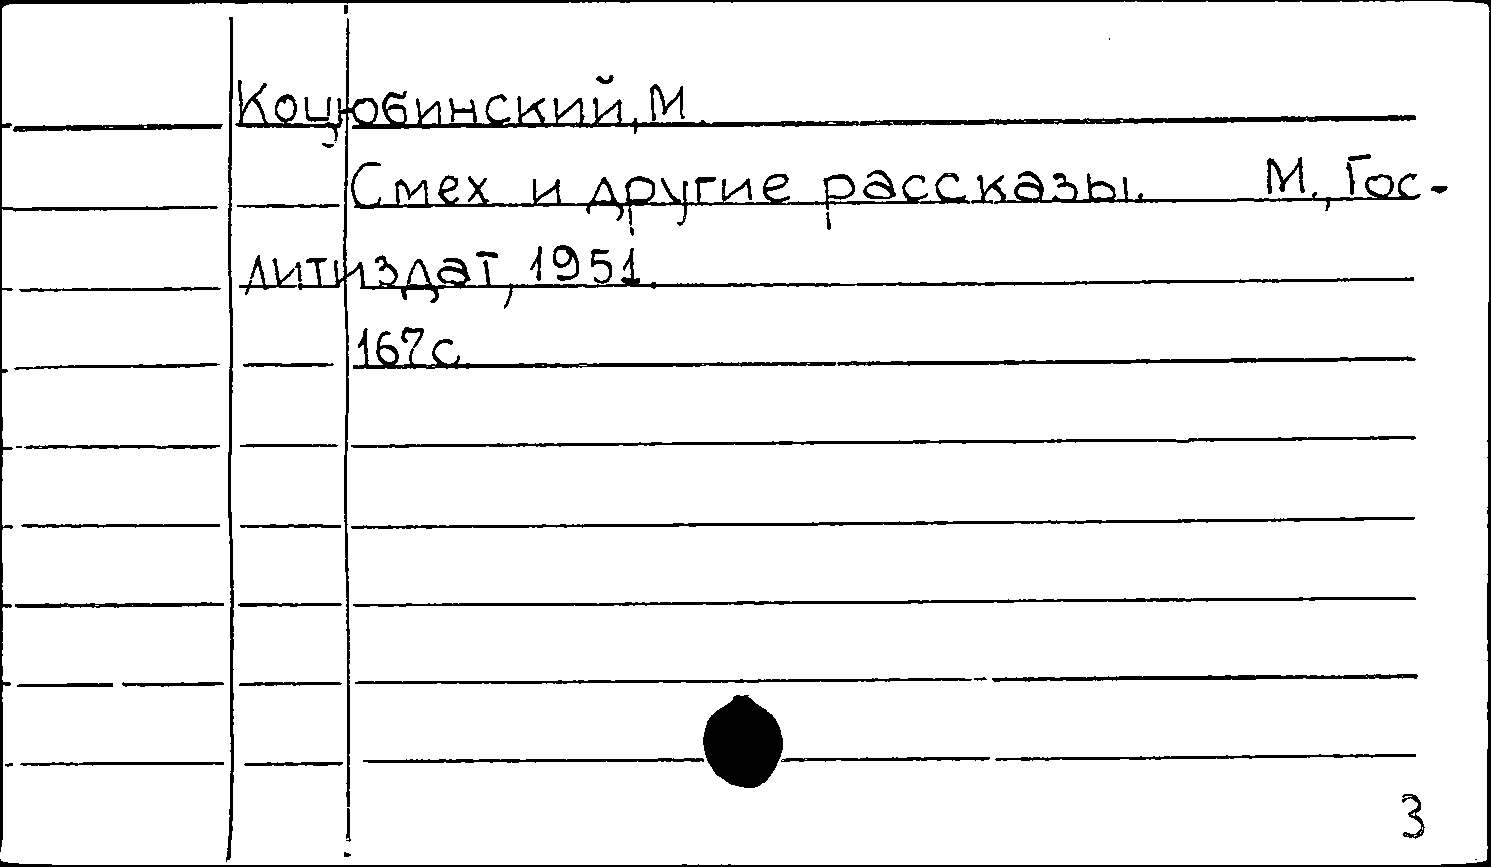 Коцюбинский, М.
Смех и другие рассказы. М., Гос-
литиздат, 1951.
167 с.
3